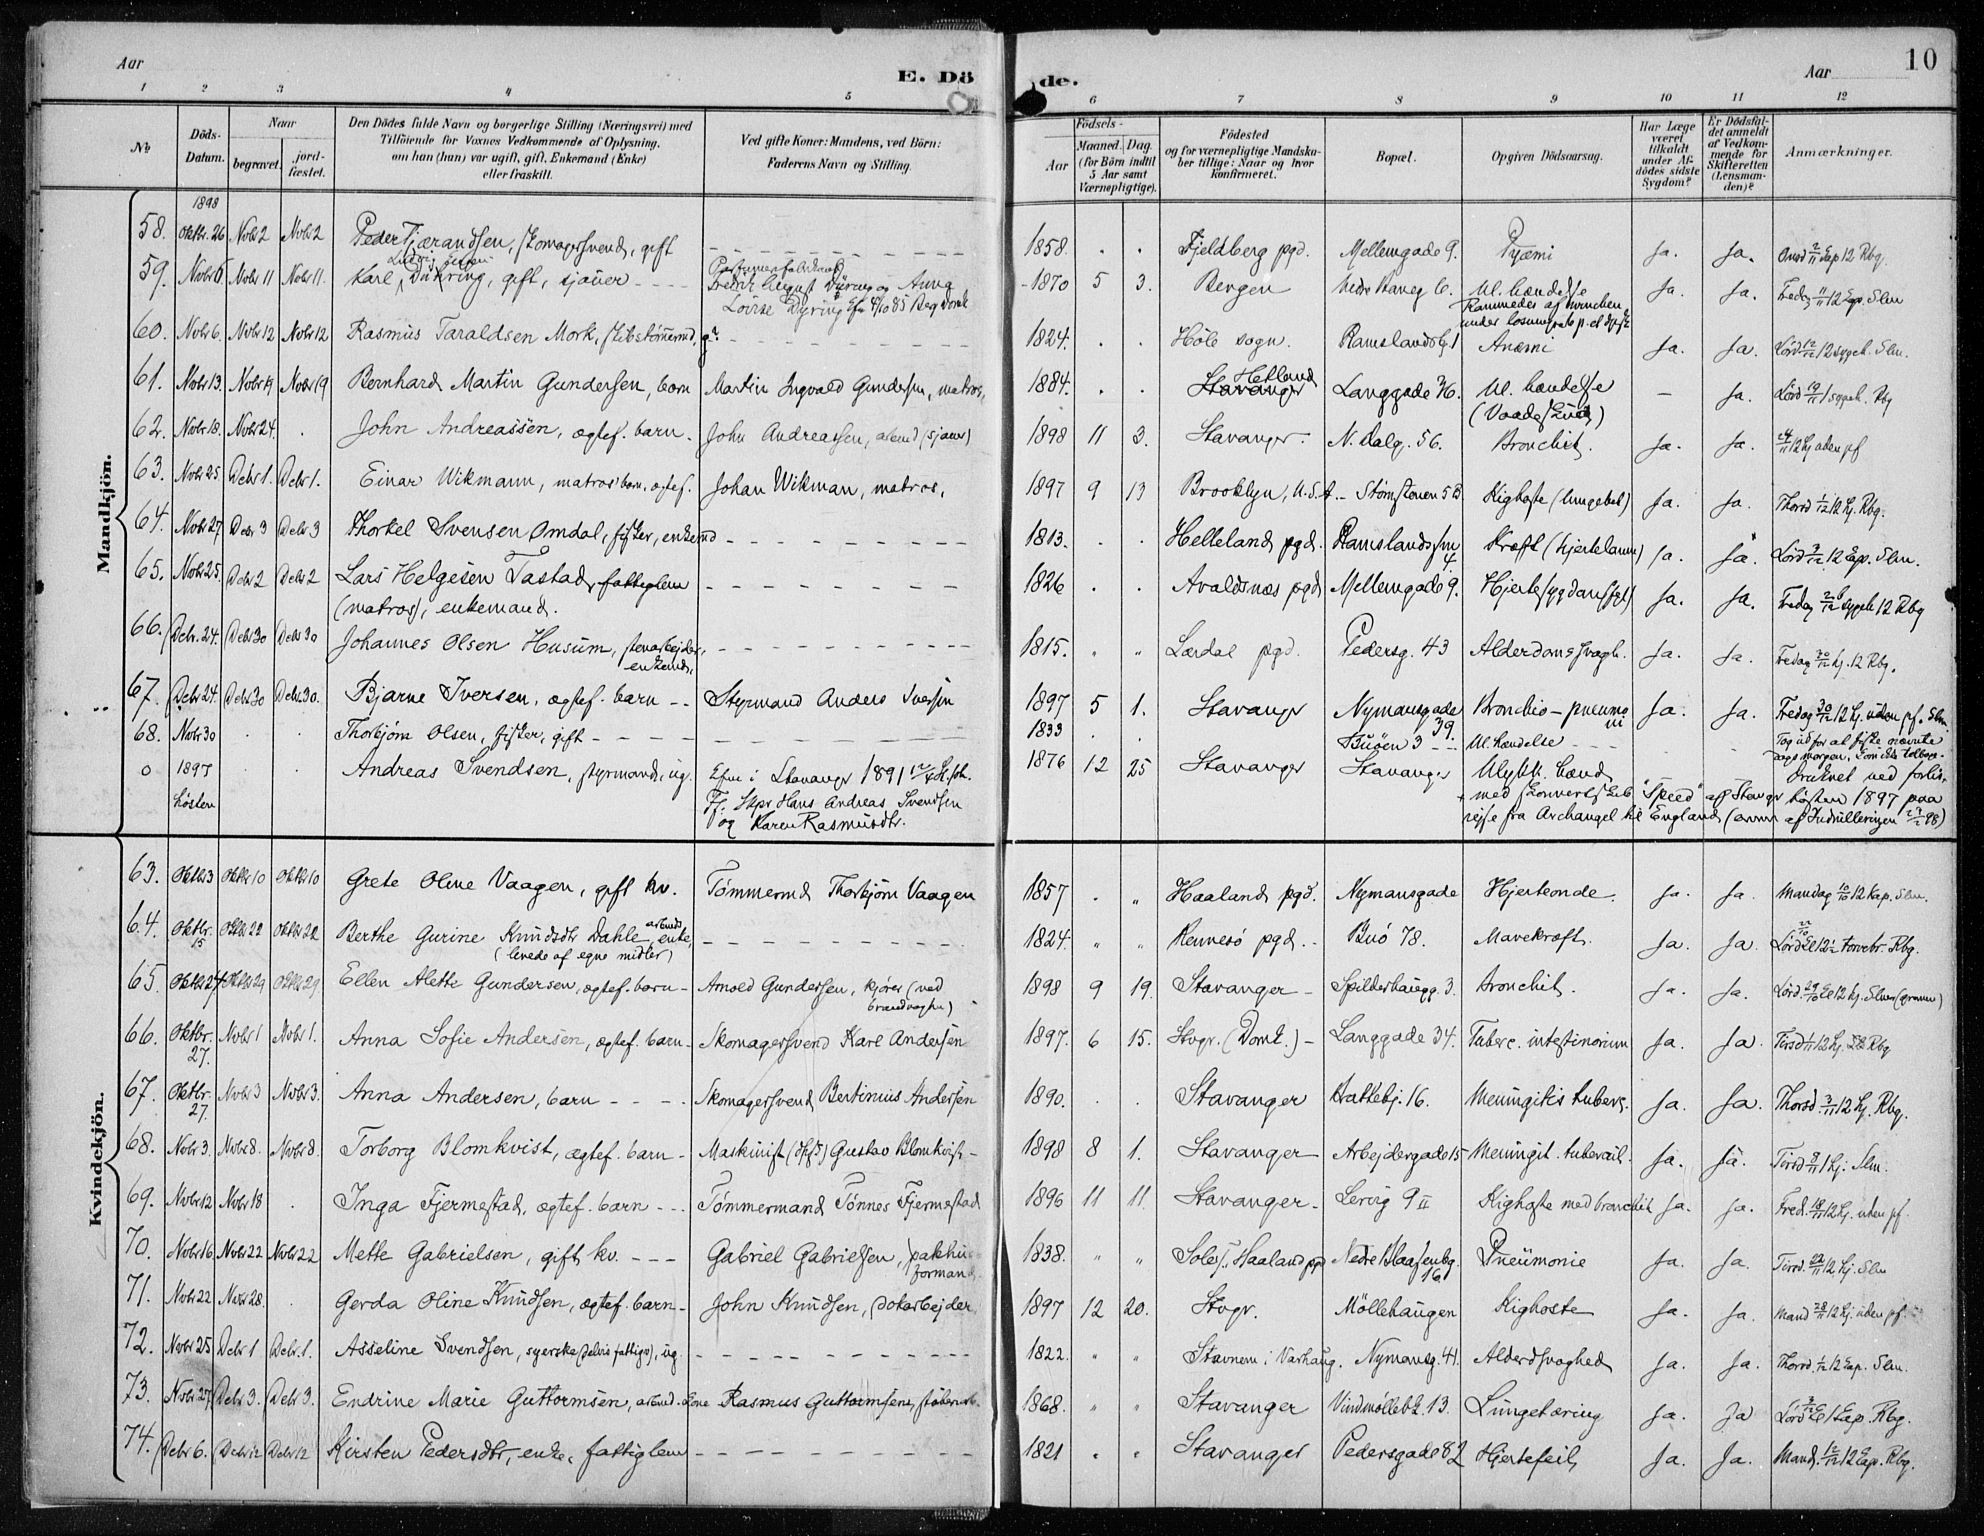 Aar
E. Dö
de.
Aar
10
1 2 3 4 5 6 7 8 9 10 11 12
No.
Döds-Datum.
Naar
begravet.
jord-fæstet.
Den Dödes fulde Navn og borgerlige Stilling (Næringsvei) med
Tilföiende for Voxnes Vedkommende af Oplysning,
om han (hun) var ugift, gift, Enkemand (Enke)
eller fraskilt.
Ved gifte Koner: Mandens, ved Börn:
Faderens Navn og Stilling.
Födsels-
Aar
Maaned. Dag.
(for Börn indtil 5 Aar samt Værnepligtige).
Födested
og for værnepligtige Mandska-
ber tillige: Naar og hvor
konfirmeret.
Bopæl.
Opgiven Dödsaarsag.
Har Læge været tilkaldt under Af-dödes sidste Sygdom?
Er Dödsfal-det anmeldt af Vedkom-mende for Skifteretten (Lensman-den)?
Anmærkninger.
Mandkjön.
1898
58. Oktbr. 26 Novbr 2 Novbr 2 Peder Tjærandsen, skomagersvend, gift 1858. Fjeldberg pgd. Mellemgade 9. Pyæmi Ja. Ja. Onsd 2/11 Kap 12 Rbg.
Ludvig
59. Novbr 5 Novbr 11 Novbr 11. Karl Duhring, gift, sjauer
August Dyring og Anna
Lovise Dyring
1870 5 3. Bergen Nedre 6. Ul. hændelse Ja. Ja. Fredag 11/11 12 Kap. Slm
60. Novbr 6. Novbr 12 Novbr 12 Rasmus Taraldsen Mork, skibstømmermd, g. 1824. Høle sogn. Ramslandsbg 1 Anæmi Ja. Ja. Lørd 12/11 12 sygeh. Slm.
61. Novbr 13. Novbr 19 Novbr 19 Bernhard Martin Gundersen, barn Martin Ingvald Gundersen, matros, 1884. Stavanger Hetland Langgade 76. Ul. hændelse – Ja. Lørd 19/11 1 sygeh. Rbg
(Vaadeskud)
62. Novbr 18. Novbr 24. John Andreassen, ægtef. barn John Andreassen, arbmd (sjauer) 1898 11 3. Stavanger. N. Dalg. 56. Bronchit. Ja. Ja. 24/11 12 hj uden pf
63. Novbr 25 Debr 1. Debr 1. Einar Wikmann, matros barn, ægtef. Johan Wikman, matros, 1897 9 13 Brooklyn, U.S.A. Strømstenen 5B Kighoste (lungebet) Ja. Ja. Thorsd 1/12 12 hj. Rbg.
64. Novbr 27 Debr 3 Debr 3 Thorkel Svensen Omdal, fisker, enkemd 1813. Helleland pgd. Kræft (hjertelam) Ja. Ja Lørd 3/12 12 Kap. Slm.
65. Novbr 25 Debr 2 Debr 2 Lars Helgesen Tastad, fattiglem 1826 Avaldsnæs pgd Mellemgade 9. Ja. Ja. Fredag 2/12 sygeh 12 Rbg
(matros), enkemand.
66. Debr. 24. Debr 30 Debr 30 Johannes Olsen Husum, stenarbejder, 1815. Lærdal pgd. Pedersg. 43 Alderdomssvagh. Ja. Ja. Fredag 30/12 hj. 12 Rbg.
enkemd.
67. Debr 24. Debr 30 Debr. 30. Bjarne Iversen, ægtef. barn Styrmand Anders Iversen 1897 5 1. Stavanger Nymansgade 39. Bronchio-pneumoni Ja. Ja. Fredag 30/12 12 hj. uden pf. Slm
68. Novbr 30 Thorbjørn Olsen, fisker, gift 1833 Buøen 3 Ul. hændelse Tog ud for at fiske nævnte dags morgen,
0 1897 høsten Andreas Svendsen, styrmand, ug. i Stavanger 1891
F. Skpr Hans Andreas Svendsen
og Karen Rasmusdtr.
1876 12 25 Stavanger Stavanger Ulykk. hænd druknet ved forlis,
med skonnertskib "Speed" af Stavgr høsten 1897 paa
rejse fra Archangel til England (anm af Indrulleringen 98)
Kvindekjön.
63. Oktbr 3 Oktbr 10 Oktbr 10 Grete Oline Vaagen, gift kv. Tømmermd Thorbjørn Vaagen 1857 Haaland pgd. Nymansgade Hjerteonde. Ja. Ja Mandag 10/10 12 Kap. Slm.
64. Oktbr. 15 Oktbr 22 Oktbr 22 Berthe Gurine Knudsdtr Dahle, arbmds enke, 1824. Rennesø pgd. Buø 78. Mavekræft. Ja. Ja. Lørd 22/10 Rbg.
(levede af egne midler)
65. Oktbr 24 Oktbr 29 Oktbr 29 Ellen Alette Gundersen, ægtef. barn Arnold Gundersen, kjører (ved 1898 9 19. Stavanger Spilderhaugg. 3. Bronchit. Ja. Ja. Lørd. 29/10 12 hj. Slm
brandvagten)
66. Oktbr. 27. Novbr 1 Novbr 1. Anna Sofie Andersen, ægtef. barn Skomagersvend Karl Andersen 1897. 6 15. Stvgr. (Domk.) Langgade 34. Tuberc. intestinorium Ja. Ja. Tirsd 1/11 12 hj. Rbg
67. Oktbr. 27. Novbr 3 Novbr 3. Anna Andersen, barn Skomagersvend Bertinius Andersen 1890. Stavanger Brattebj. 16. Meningitis tuberc. Ja. Ja. Thorsd 3/11 12 hj. Rbg.
68. Novbr 3. Novbr 8. Novbr 8. Torborg Blomkvist, ægtef. barn Maskinist Gustav Blomkvist 1898 8 1. Stavanger Arbejdergade 15 Meningit. tubercul. Ja. Ja. Tirsd 8/11 1 hj. Slm.
69. Novbr 12 Novbr 18 Inga Fjermestad, ægtef. barn Tømmermand Tønnes Fjermestad 1896 11 11. Stavanger Lervig 9 II Kighoste med bronchit Ja. Ja. Fred. 18/11 12 hj. uden pf.
70. Novbr 16. Novbr 22 Novbr 22 Mette Gabrielsen, gift kv. Gabriel Gabrielsen, pakhus 1838. Sole s., Haaland pgd Nedre Blaasenbg. 16 Pneumonie Ja. Ja. Tirsd. 22/11 12 hj. Slm
formand.
71. Novbr 22 Novbr 28. Gerda Oline Knudsen, ægtef. barn John Knudsen, dokarbejder, 1897 12 20. Stvgr. Möllehaugen Kighoste Ja. Ja. Mand 28/11 12 hj. uden pf.
72. Novbr 25 Debr 1 Debr. 1. Asseline Svendsen, syerske (delvis fattigv), ug. 1822. Stavnem i Varhaug. Nymansg. 41. Alderdsvaghed Ja. Ja. Thorsd. 1/12 12 Kap. Slm.
73. Novbr 27 Debr 3. Debr 3. Endrine Marie Guttormsen, arbmd. kone Rasmus Guttormsen, støberiarb. 1868. Stavanger Vindmøllebk. 13. Lungetæring Ja. Ja Lørd 3/12 1 Kap. Rbg.
74. Debr 6. Debr 12 Debr 12 Kirsten Pedersdtr, enke, fattiglem 1821 Stavanger Pedersgade 82 Hjertefeil, Ja. Ja. Mand. 12/12 12 Kap. Rbg.